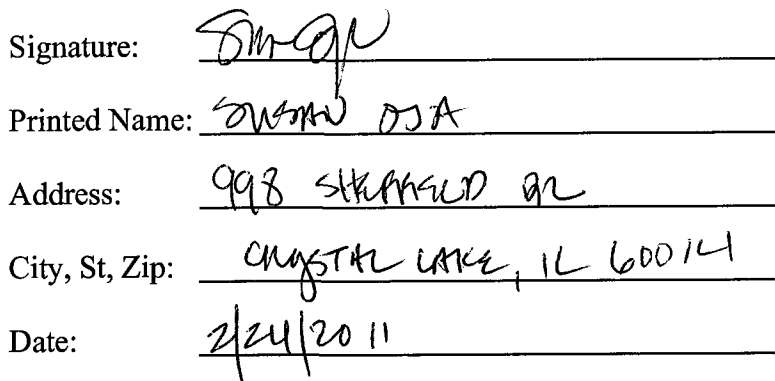 Signature:
Printed Name: SUSAN OJA
Address: 998 SHEFFIELD DR
City, St, Zip: CRYSTAL LAKE, IL 60014
Date: 2/24/2011